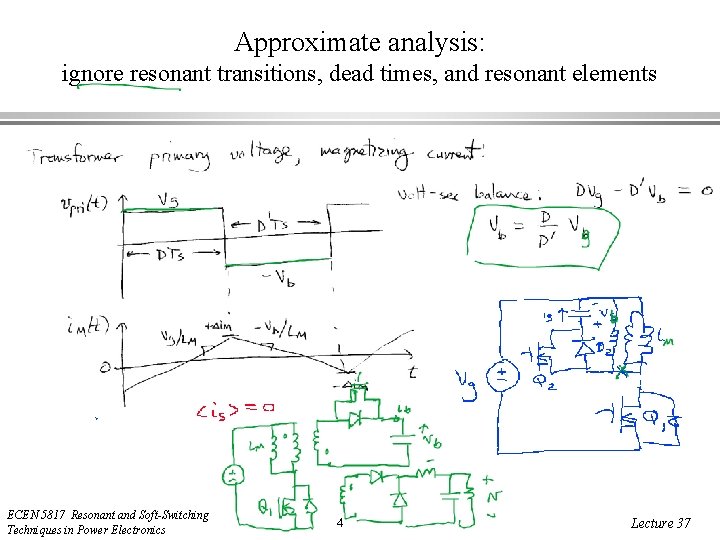 Approximate analysis:
ignore resonant transitions, dead times, and resonant elements
Transformer primary voltage, magnetizing current:
v_pri(t)
Vg
D'Ts
DTs
-V_b
volt-sec balance: DVg - D'V_b = 0
V_b = D/D' Vg
i_M(t)
Vg/L_M
+Δim
-V_b/L_M
0
t
<i_s> = 0
i_s
V_b
+
D_2
L_M
Vg
+
-
Q_2
Q_1
L_M
Q_1
i_b
+
V_b
-
+
V
-
ECEN 5817 Resonant and Soft-Switching
Techniques in Power Electronics
4
Lecture 37